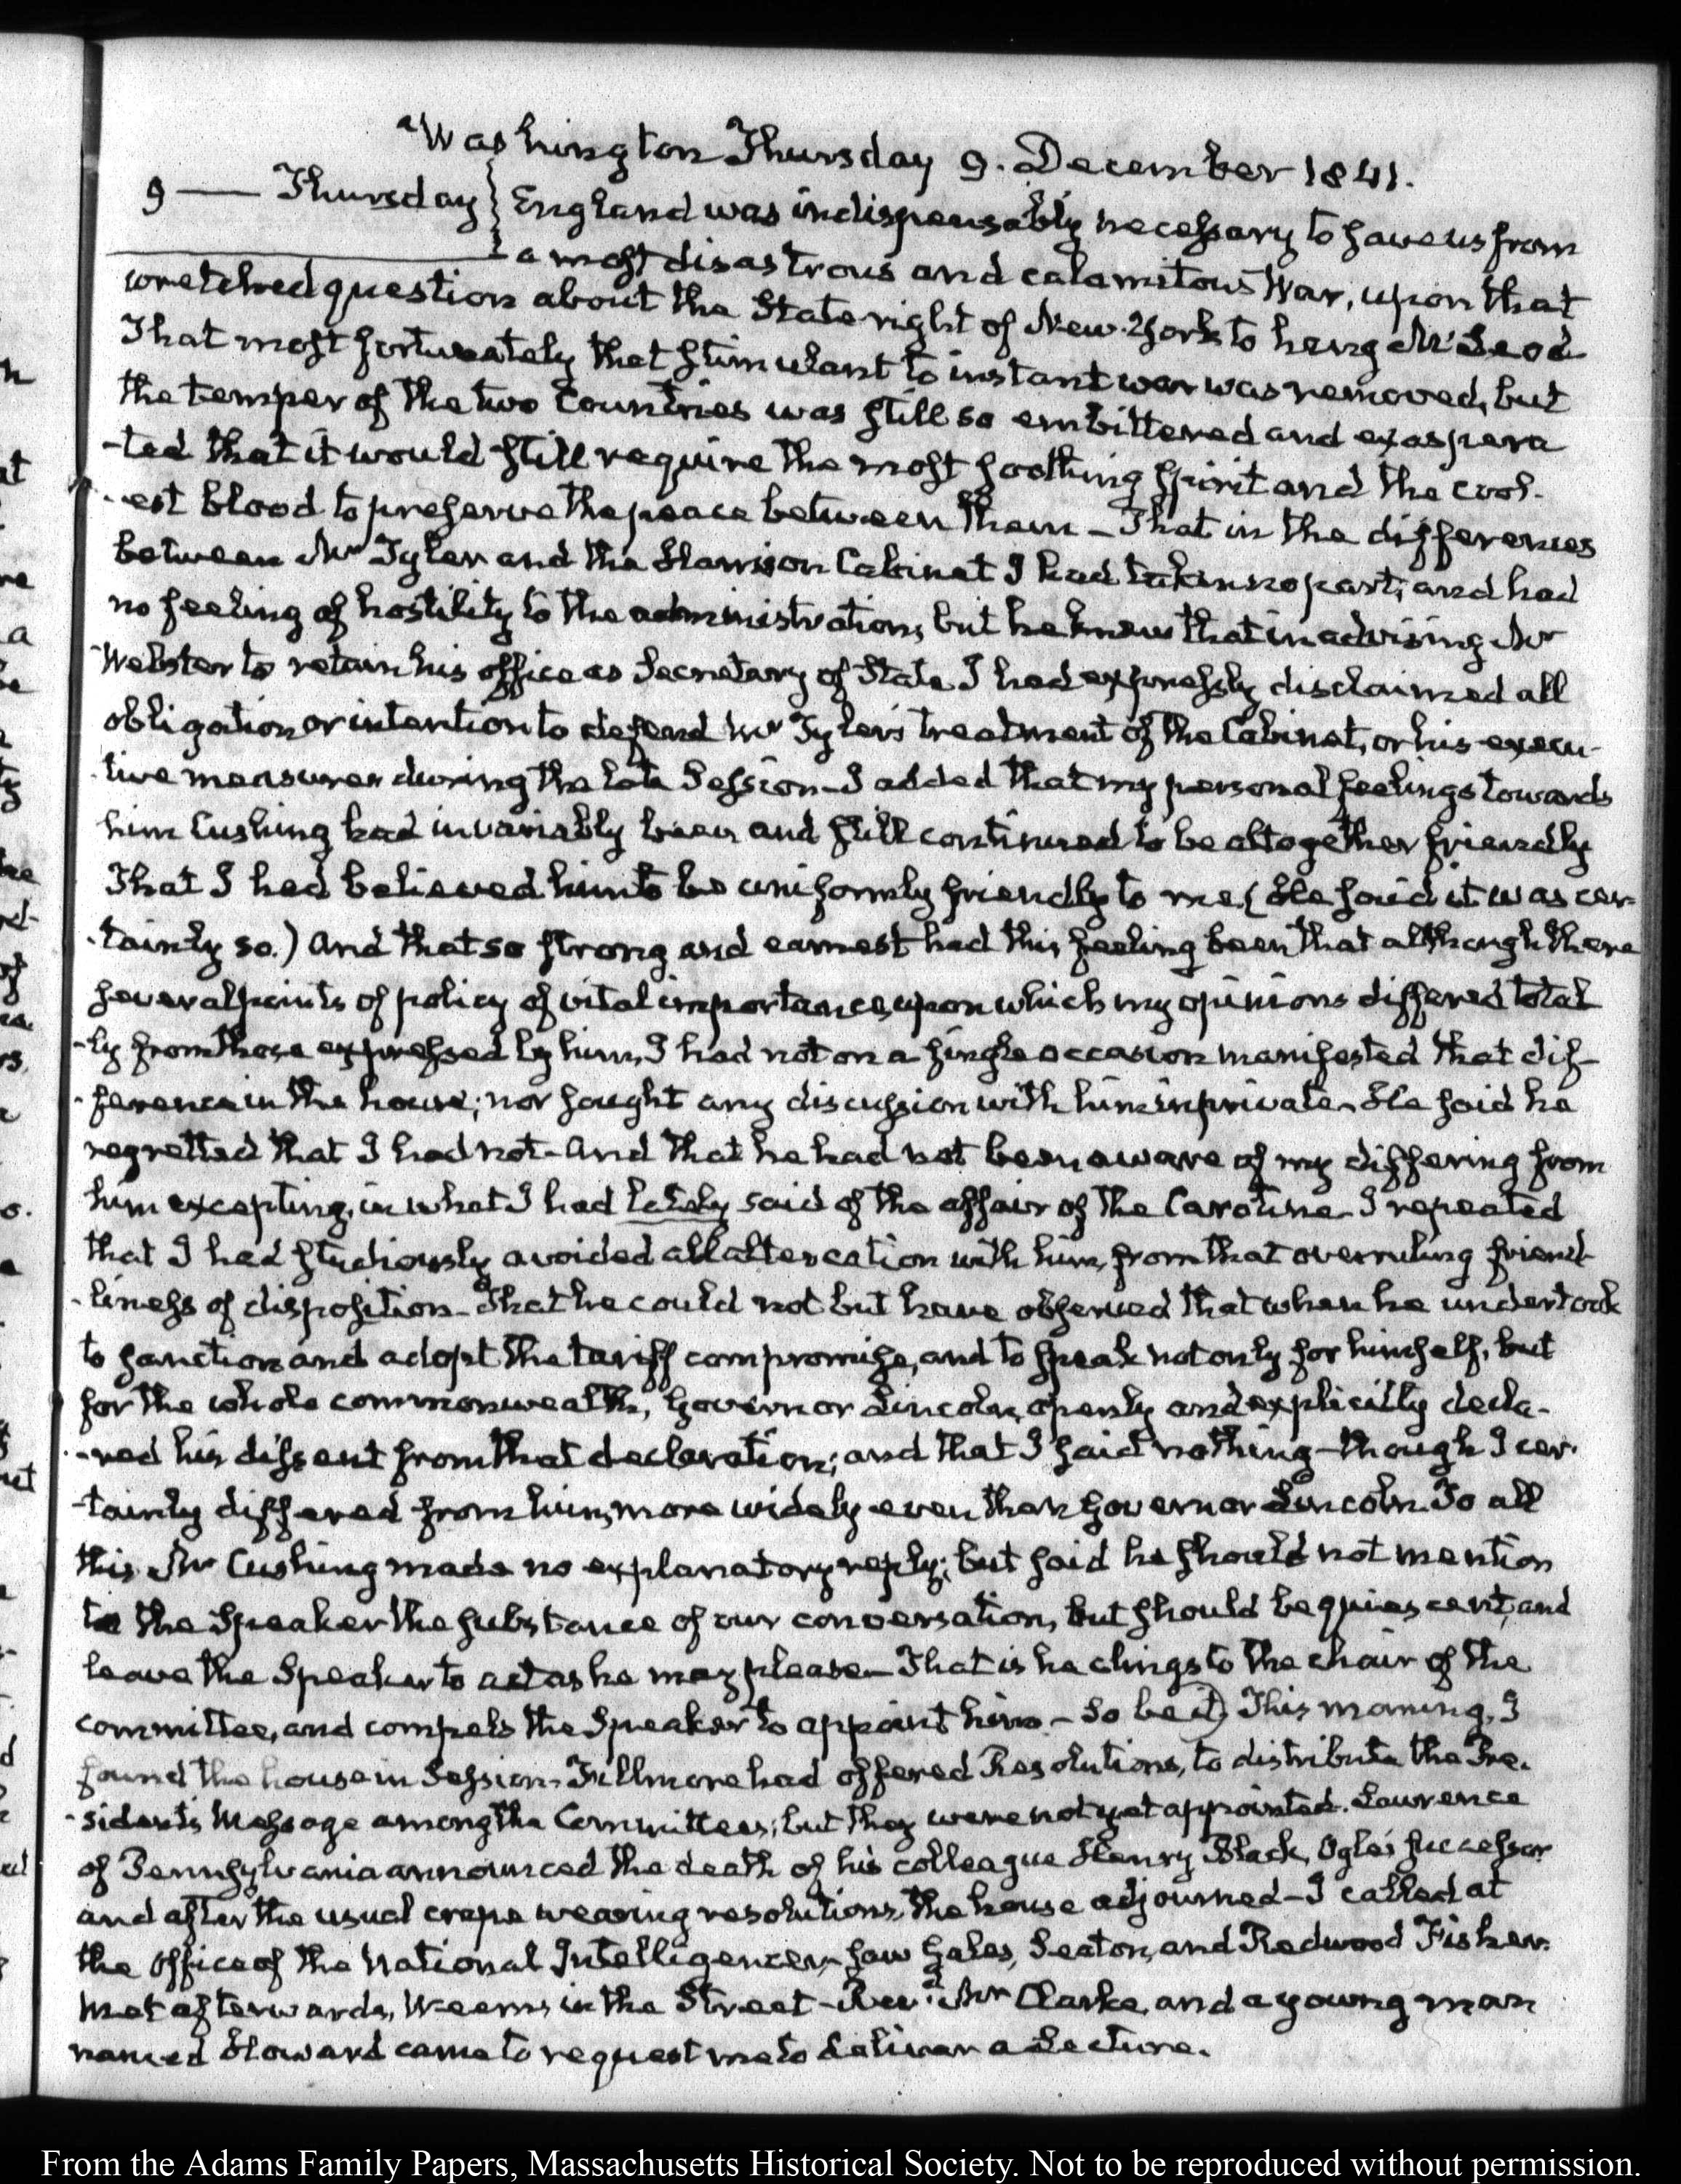 Washington Thursday 9. December 1841.
9 — Thursday } England was indispensably necessary to save us from
a most disastrous and calamitous War, upon that
wretched question about the State right of New-York to hang McLeod
That most fortunately that stimulant to instant war was removed, but
the temper of the two Countries was still so embittered and exaspera
-ted that it would still require the most soothing spirit and the cool-
-est blood to preserve the peace between them - That in the differences
between Mr Tyler and the Harrison Cabinet I had taken no part, and had
no feeling of hostility to the administration, but he knew that in advising Mr
Webster to retain his office as Secretary of State I had expressly disclaimed all
obligation or intention to defend Mr Tyler's treatment of the Cabinet, or his execu-
-tive measures during the late Session - I added that my personal feelings towards
him Cushing had invariably been and still continued to be altogether friendly
That I had believed him to be uniformly friendly to me, (He said it was cer-
-tainly so.) and that so strong and earnest had this feeling been that although there
several points of policy of vital importance, upon which my opinions differed total
-ly from those expressed by him, I had not on a single occasion manifested that dif-
-ference in the house; nor sought any discussion with him in private. He said he
regretted that I had not - And that he had not been aware of my differing from
him excepting, in what I had lately said of the affair of the Caroline - I repeated
that I had studiously avoided all altercation with him, from that overruling friend-
-liness of disposition - That he could not but have observed that when he undertook
to sanction and adopt the tariff compromise, and to speak not only for himself, but
for the whole commonwealth, Governor Lincoln, openly and explicitly decla-
-red his dissent from that declaration; and that I said nothing - though I cer-
-tainly differed from him, more widely even than Governor Lincoln. To all
this Mr Cushing made no explanatory reply; but said he should not mention
to the Speaker the substance of our conversation, but should be quiescent, and
leave the Speaker to act as he may please - That is he clings to the chair of the
committee, and compels the Speaker to appoint him. - So be it) This morning, I
found the house in Session. Fillmore had offered Resolutions, to distribute the Pre-
-sident's Message among the Committees; but they were not yet appointed. Lawrence
of Pennsylvania announced the death of his colleague Henry Black, Ogle's successor
and after the usual crape wearing resolutions, the house adjourned - I called at
the Office of the National Intelligencer, saw Gales, Seaton, and Redwood Fisher.
Met afterwards, Weems, in the Street - Revd. Mr Clarke, and a young man
named Howard came to request me to deliver a Lecture.
From the Adams Family Papers, Massachusetts Historical Society. Not to be reproduced without permission.